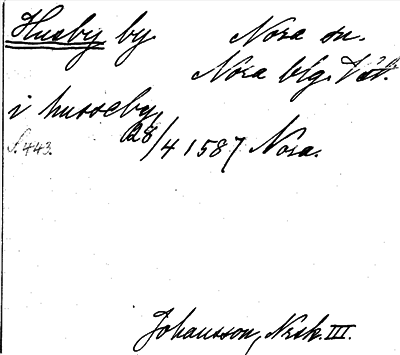 Husby by. Nora sn.
Nora blg. Väst.
i husseby
S. 443. 28/4 1587 Nora.
Johansson, Norsk. III.